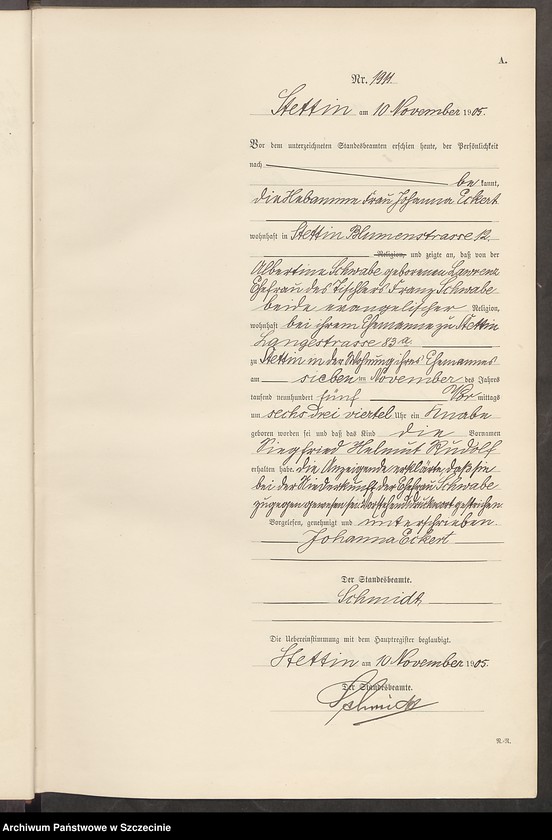 A.
Nr. 1911.
Stettin am 10 November 1905.
Vor dem unterzeichneten Standesbeamten erschien heute, der Persönlichkeit
nach
be kannt,
die Hebamme Frau Johanna Eckert
wohnhaft in Stettin Blumenstrasse 12,
Religion, und zeigte an, daß von der
Albertine Schwabe geborenen Lawrenz
Ehefrau des Tischlers Franz Schwabe
beide evangelischer Religion,
wohnhaft bei ihrem Ehemanne zu Stettin
Langestrasse 83a
zu Stettin in der Wohnung ihres Ehemannes
am sieben ten November des Jahres
tausend neunhundert fünf Vor mittags
um sechs drei viertel Uhr ein Knabe
geboren worden sei und daß das Kind die Vornamen
Siegfried Helmut Rudolf
erhalten habe. die Anzeigende erklärte, daß sie
bei der Niederkunft der Ehefrau Schwabe
zugegen gewesen sei. Vorstehend 1 Druckwort gestrichen.
Vorgelesen, genehmigt und unterschrieben.
Johanna Eckert
Der Standesbeamte.
Schmidt
Die Uebereinstimmung mit dem Hauptregister beglaubigt.
Stettin am 10 November 1905.
Der Standesbeamte.
Schmidt
N.-R.
Archiwum Państwowe w Szczecinie